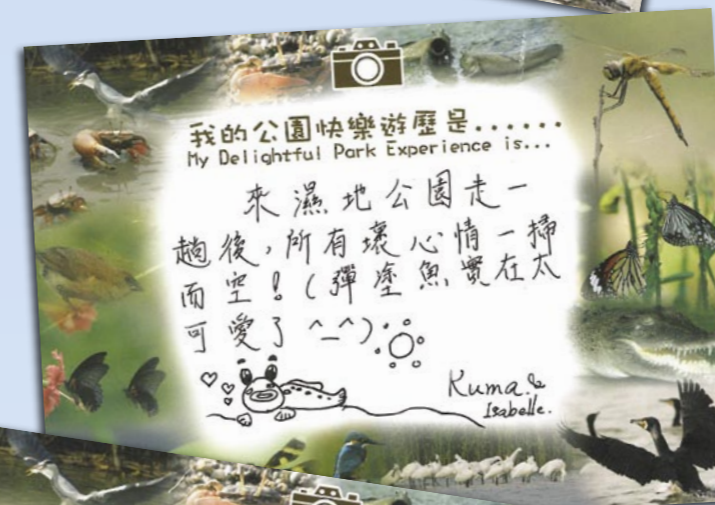 我的公園快樂遊歷是......
My Delightful Park Experience is...
來濕地公園走一
趟後，所有壞心情一掃
而空！(彈塗魚實在太
可愛了 ^_^)
Kuma. &
Isabelle.